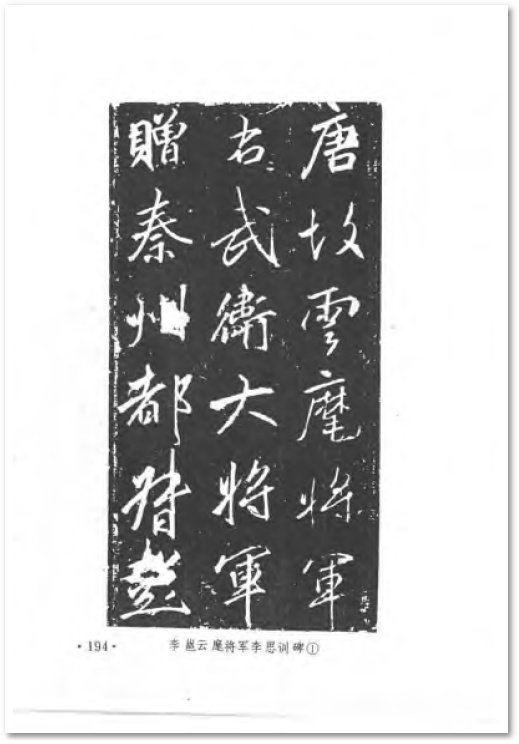 唐故雲麾將軍
右武衛大將軍
贈秦州都督彭
·194· 李邕云麾将军李思训碑①